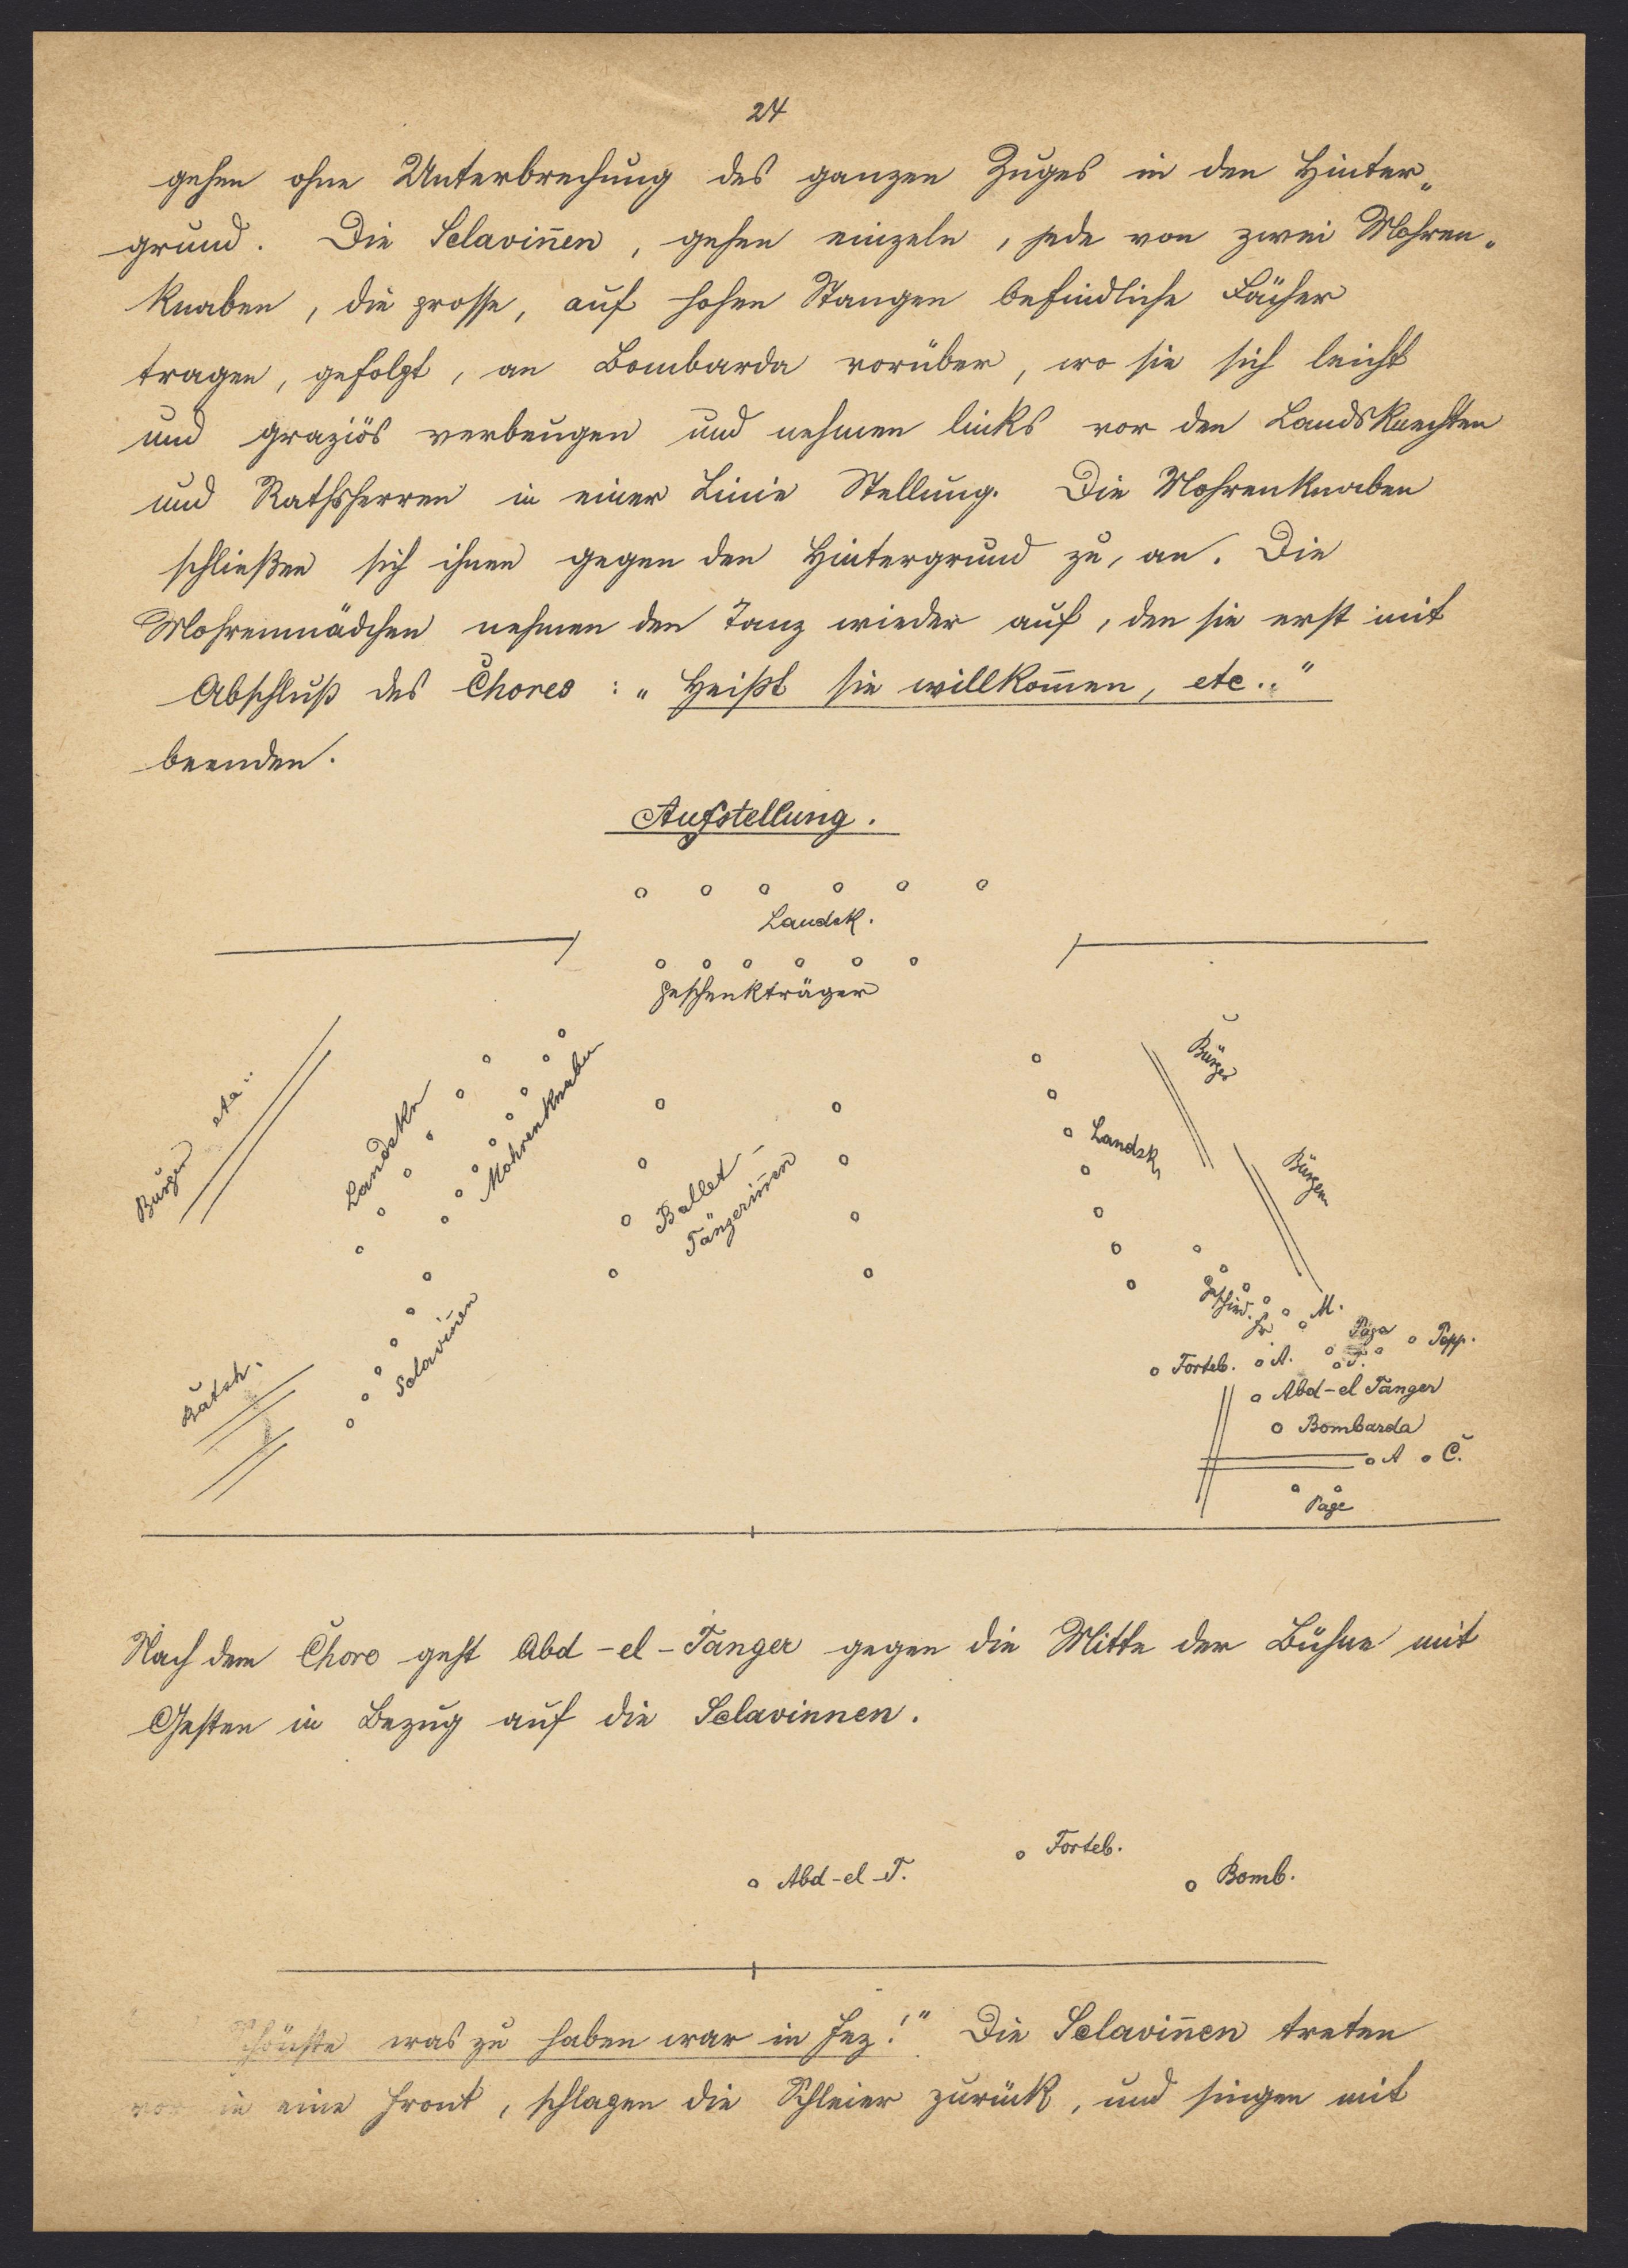 24
gehen ohne Unterbrechung des ganzen Zuges in den Hinter„
grund. Die Sclavin̄en, gehen einzeln, jede von zwei Mohren„
knaben, die grosse, auf hohen Stangen befindliche Fächer
tragen, gefolgt, an Bombarda vorüber, wo sie sich leicht
und graziös verbeugen und nehmen links vor den Landsknechten
und Rathsherren in einer Linie Stellung. Die Mohrenknaben
schließen sich ihnen gegen den Hintergrund zu, an. Die
Mohrenmädchen nehmen den Tanz wieder auf, den sie erst mit
Abschluß des Chores: „Heißt sie willkom̄en, etc.."
beenden.
Aufstellung.
Landsk.
Geschenkträger
Bürger etc..
Landskn
Mohrenknaben
Ballet-
Tänzerin̄en
Landsk.
Bürger
Bürger
Sclavin̄en
M.
Page
Popp.
Forteb.
A.
T.
Abd-el Tanger
Bombarda
A
C.
Page
Nach dem Chore geht Abd-el-Tanger gegen die Mitte der Bühne mit
Gesten in Bezug auf die Sclavinnen.
Forteb.
Abd-el-T.
Bomb.
Schönste was zu haben war in Fez!" Die Sclavin̄en treten
vor in eine Front, schlagen die Schleier zurück, und singen mit